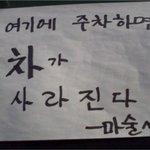 여기에 주차하면
차가
사라진다
-마술